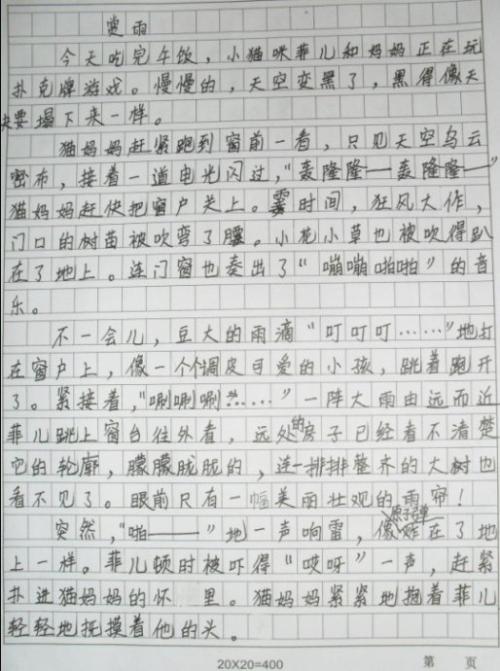 雷雨
今天吃完午饭，小猫咪菲儿和妈妈正在玩
扑克牌游戏。慢慢的，天空变黑了，黑得像天
快要塌下来一样。
猫妈妈赶紧跑到窗前一看，只见天空乌云
密布，接着一道电光闪过，“轰隆隆——轰隆隆——”
猫妈妈赶快把窗户关上。霎时间，狂风大作，
门口的树苗被吹弯了腰。小花小草也被吹得趴
在了地上。连门窗也奏出了“嘣嘣啪啪”的音
乐。
不一会儿，豆大的雨滴“叮叮叮……”地打
在窗户上，像一个个调皮可爱的小孩，跳着跑开
了。紧接着，“唰唰唰……”一阵大雨由远而近
菲儿跳上窗台往外看，远处的房子已经看不清楚
它的轮廓，朦朦胧胧的，连一排排整齐的大树也
看不见了。眼前只有一幅美丽壮观的雨帘！
突然，“啪——”地一声响雷，像原子弹炸在了地
上一样。菲儿顿时被吓得“哎呀”一声，赶紧
扑进猫妈妈的怀里。猫妈妈紧紧地抱着菲儿
轻轻地抚摸着他的头。
20×20=400
第 页